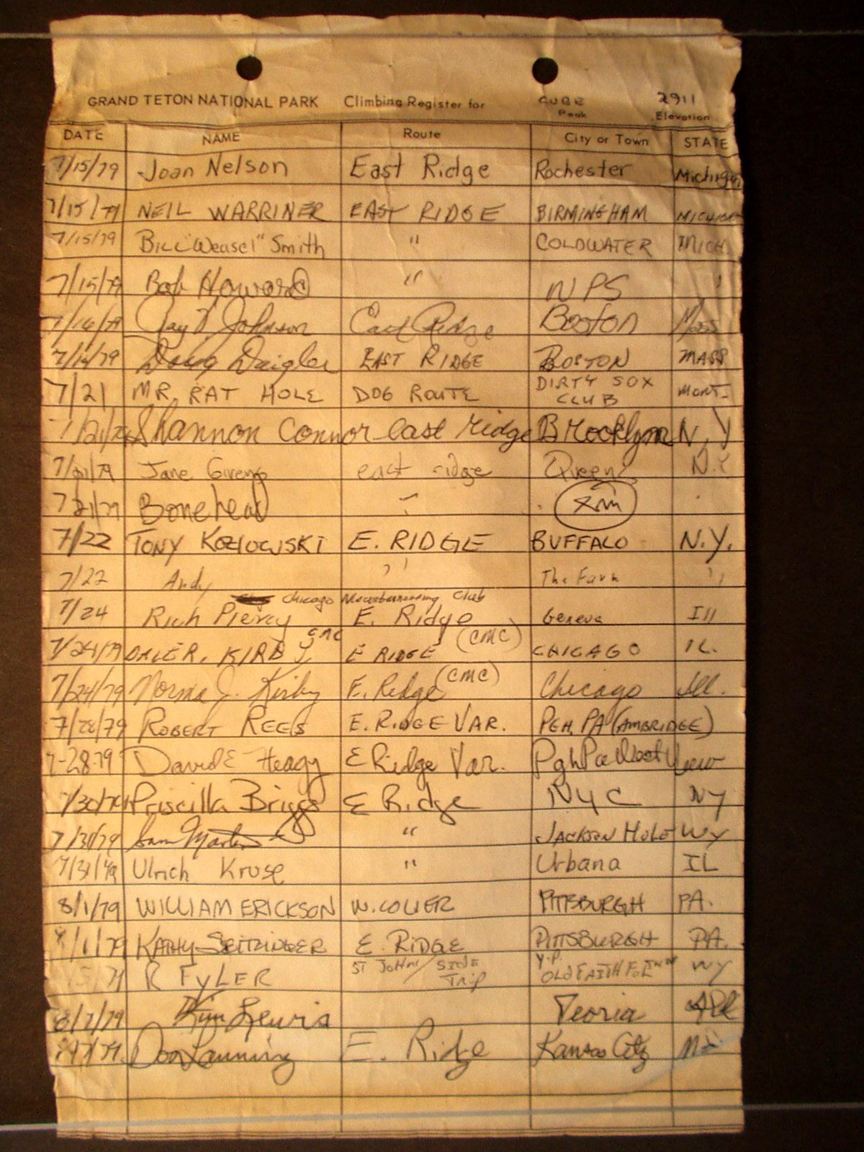 GRAND TETON NATIONAL PARK Climbing Register for CUBE 2911
Peak Elevation
DATE NAME Route City or Town STATE
7/15/79 Joan Nelson East Ridge Rochester Michigan
7/15/79 NEIL WARRINER EAST RIDGE BIRMINGHAM
7/15/79 BILL "Weasel" Smith " COLDWATER MICH
7/15/79 Bob Howard " NPS
7/16/79 Jay D Johnson East Ridge Boston Mass
7/16/79 Doug Daigler EAST RIDGE BOSTON MASS
7/21 MR. RAT HOLE DOG ROUTE DIRTY SOX CLUB MONT.
7/21/79 Shannon Connor east ridge Brooklyn N.Y
7/21/79 Jane east ridge Queens N.Y.
7/21/79 Bonehead "
7/22 TONY KOZLOWSKI E. RIDGE BUFFALO N.Y.
7/22 Andy " The Farm "
Chicago Mountaineering Club
7/24 Rich Piercy E. Ridge Geneva Ill
7/24/79 DALE R. KIRBY CMC E RIDGE (CMC) CHICAGO IL.
7/24/79 Norma J. Kirby E. Ridge (CMC) Chicago Ill.
7/28/79 ROBERT REES E. RIDGE VAR. PGH, PA (AMBRIDGE)
7-28-79 David E Heagy E Ridge Var. Pgh Pa
7/30/79 Priscilla Briggs E Ridge NYC NY
7/31/79 Sam Martin " JACKSON HOLE WY
7/31/79 Ulrich Kruse " Urbana IL
8/1/79 WILLIAM ERICKSON W. COULIER PITTSBURGH PA.
8/1/79 KATHY SEITZINGER E. RIDGE PITTSBURGH PA.
R FYLER ST JOHNS / SIDE TRIP Y.P. OLD FAITHFUL INN WY
8/7/79 Kim Lewis Peoria
Don Lanning E. Ridge Kansas City